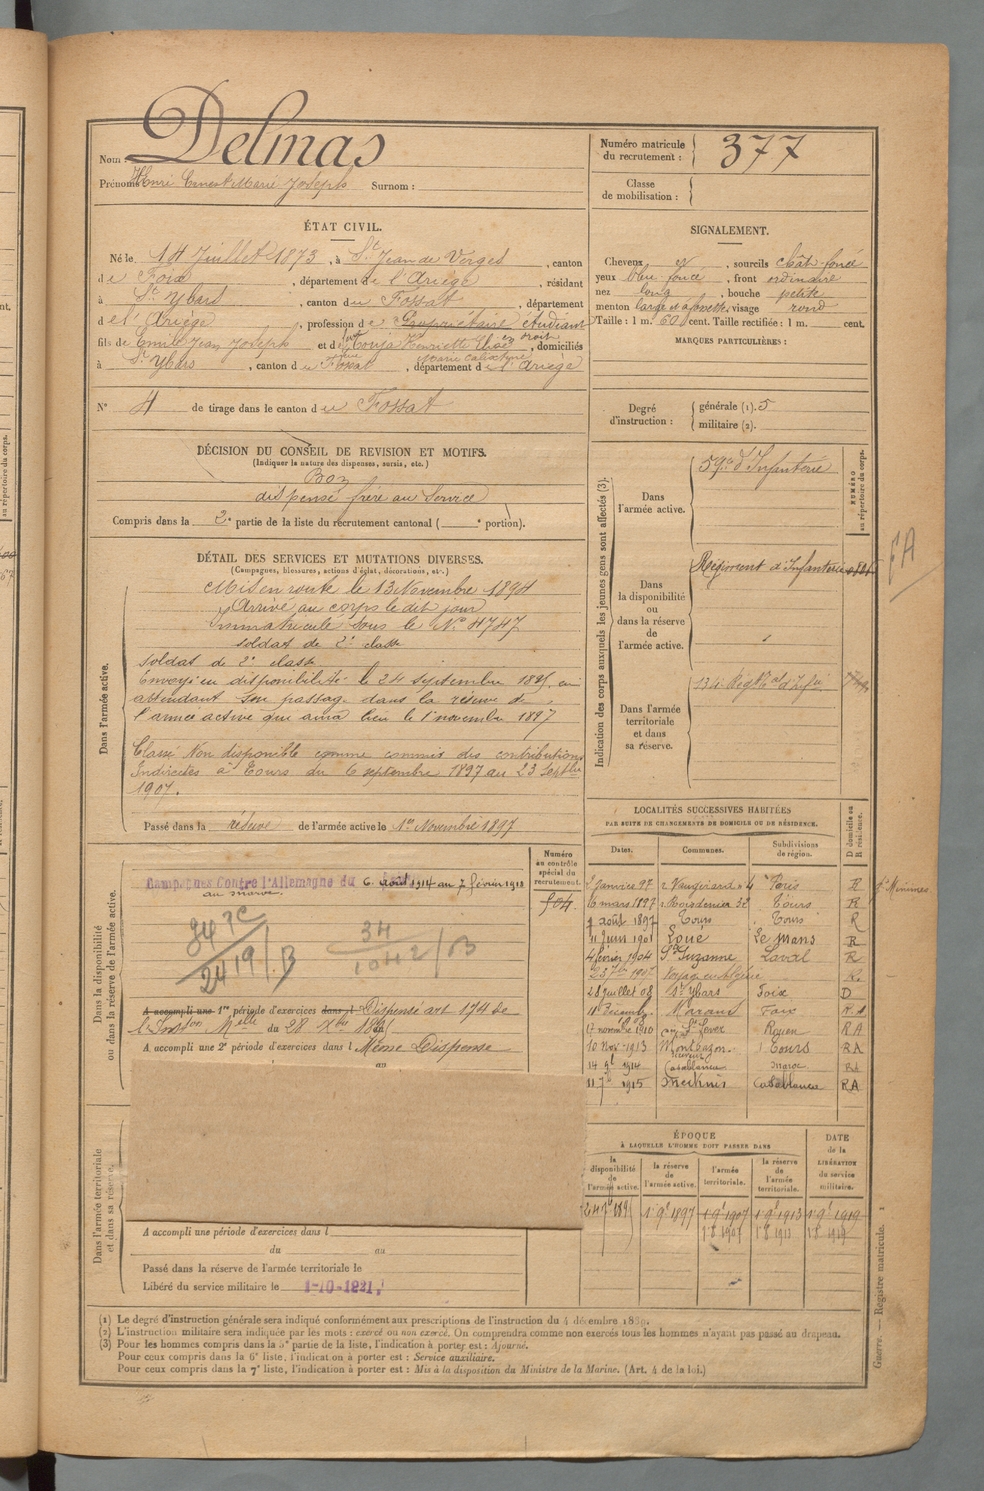 Nom : Delmas
Prénoms Henri Ernest Marie Joseph Surnom :
Numéro matricule du recrutement : 377
Classe de mobilisation :
ÉTAT CIVIL.
Né le 14 Juillet 1873, à St Jean de Verges, canton
de Foix, département de l'Ariège, résidant
à St Ybars, canton du Fossat, département
de l'Ariège, profession de Propriétaire étudiant
en droit
fils de Emile Jean Joseph et de Henriette Elisa, domiciliés
Marie
à St Ybars, canton du Fossat, département de l'Ariège
N° 4 de tirage dans le canton du Fossat
SIGNALEMENT.
Cheveux et, sourcils chât-foncé
yeux bleu foncé, front ordinaire
nez long, bouche petite
menton large et à fossette, visage rond
Taille : 1 m. 60 cent. Taille rectifiée : 1 m. cent.
MARQUES PARTICULIÈRES :
Degré d'instruction : générale (1). 5
militaire (2).
DÉCISION DU CONSEIL DE REVISION ET MOTIFS.
(Indiquer la nature des dispenses, sursis, etc.)
Bon
dispensé frère au Service
Compris dans la 2e partie de la liste du recrutement cantonal ( e portion).
DÉTAIL DES SERVICES ET MUTATIONS DIVERSES.
(Campagnes, blessures, actions d'éclat, décorations, etc.)
Dans l'armée active.
Mis en route le 13 Novembre 1894
Arrivé au corps le dit jour
Immatriculé sous le N° 4747
soldat de 2e classe
soldat de 2e classe
Envoyé en disponibilité le 24 septembre 1895 en
attendant son passage dans la réserve de
l'armée active qui aura lieu le 1er novembre 1897
Classé Non disponible comme commis des contributions
Indirectes à Tours du 6 septembre 1897 au 23 Septbre
1907.
Passé dans la réserve de l'armée active le 1er Novembre 1897
Indication des corps auxquels les jeunes gens sont affectés (3).
NUMÉRO au répertoire du corps.
Dans l'armée active.
59e d'Infanterie
Dans la disponibilité ou dans la réserve de l'armée active.
Régiment d'Infanterie
Dans l'armée territoriale et dans sa réserve.
134 Regt tal d'Infie
FA
Dans la disponibilité ou dans la réserve de l'armée active.
Numéro au contrôle spécial du recrutement.
504.
Campagnes Contre l'Allemagne du 6 août 1914 au 7 février 1918
au maroc
2419 / B
34
1042 / B
A accompli une 1re période d'exercices dans l Dispensé art 174 de
l'Inston Melle du 28 Xbre 1895
A accompli une 2e période d'exercices dans l Même Dispense
au
LOCALITÉS SUCCESSIVES HABITÉES
PAR SUITE DE CHANGEMENTS DE DOMICILE OU DE RÉSIDENCE.
Dates. Communes. Subdivisions de région. D domicile ou R résidence.
Janvier 97 r. Vaugirard 4 Paris R
16 mars 1897 r. Boisdenier 32 Tours R
9 août 1897 Tours Tours R
11 Juin 1901 Loué Le Mans R
4 février 1904 Ste Suzanne Laval R
23 7bre 1907 Voyage en Algérie R.
28 Juillet 08 St Ybars Foix D
17 novembre 1910 St Sever Rouen RA
10 nov. 1913 Montbazon Tours RA
14 9bre 1914 Casablanca Maroc RA
11 7b 1915 Meknès Casablanca RA
ÉPOQUE
À LAQUELLE L'HOMME DOIT PASSER DANS
la disponibilité de l'armée active. la réserve de l'armée active. l'armée territoriale. la réserve de l'armée territoriale. DATE de la LIBÉRATION du service militaire.
24 7b 1895 1 9b 1897 1 9b 1907 1 9b 1913 1 9b 1919
1 8 1907 1 8 1913 1 8 1919
Dans l'armée territoriale et dans sa réserve.
A accompli une période d'exercices dans l
du au
Passé dans la réserve de l'armée territoriale le
Libéré du service militaire le 1-10-1921.
(1) Le degré d'instruction générale sera indiqué conformément aux prescriptions de l'instruction du 4 décembre 1889.
(2) L'instruction militaire sera indiquée par les mots : exercé ou non exercé. On comprendra comme non exercés tous les hommes n'ayant pas passé au drapeau.
(3) Pour les hommes compris dans la 5e partie de la liste, l'indication à porter est : Ajourné.
Pour ceux compris dans la 6e liste, l'indication à porter est : Service auxiliaire.
Pour ceux compris dans la 7e liste, l'indication à porter est : Mis à la disposition du Ministre de la Marine. (Art. 4 de la loi.)
Guerre. — Registre matricule.